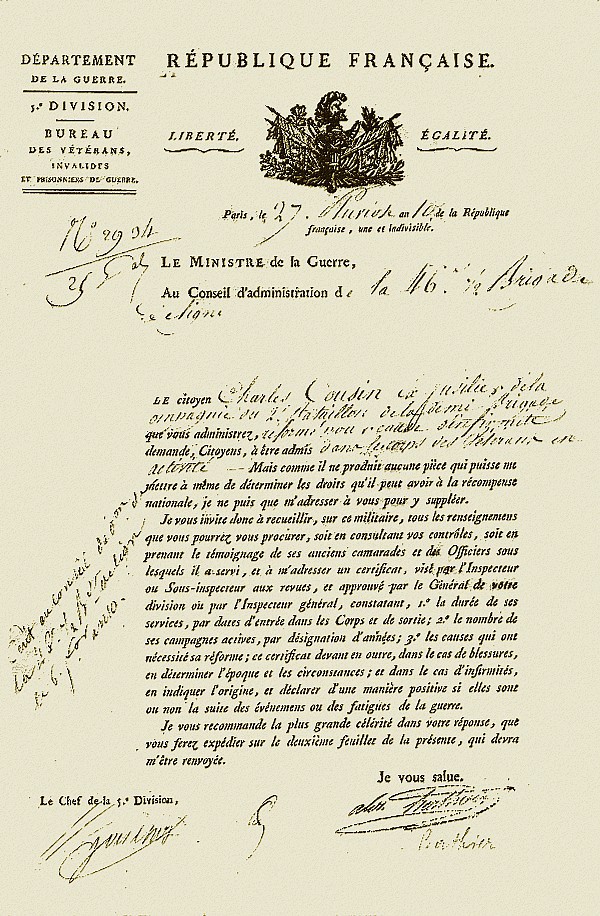 DÉPARTEMENT
DE LA GUERRE.
5.e DIVISION.
BUREAU
DES VÉTÉRANS,
INVALIDES
ET PRISONNIERS DE GUERRE.
RÉPUBLIQUE FRANÇAISE.
LIBERTÉ. ÉGALITÉ.
Paris, le 27. an 10 de la République
française, une et indivisible.
N.o 2994
25
LE MINISTRE de la Guerre,
Au Conseil d'administration de la 46. 1/2 Brigade
de ligne
LE citoyen Charles Cousin ex fusilier de la
compagnie du 2.e Bataillon de la demi Brigade
que vous administrez, réformé pour cause d'infirmité
demande, Citoyens, à être admis dans le corps des Vétérans en
activité — Mais comme il ne produit aucune pièce qui puisse me
mettre à même de déterminer les droits qu'il peut avoir à la récompense
nationale, je ne puis que m'adresser à vous pour y suppléer.
Je vous invite donc à recueillir, sur ce militaire, tous les renseignemens
que vous pourrez vous procurer, soit en consultant vos contrôles, soit en
prenant le témoignage de ses anciens camarades et des Officiers sous
lesquels il a servi, et à m'adresser un certificat, visé par l'Inspecteur
ou Sous-inspecteur aux revues, et approuvé par le Général de votre
division ou par l'Inspecteur général, constatant, 1.o la durée de ses
services, par dates d'entrée dans les Corps et de sortie; 2.o le nombre de
ses campagnes actives, par désignation d'années; 3.o les causes qui ont
nécessité sa réforme; ce certificat devant en outre, dans le cas de blessures,
en déterminer l'époque et les circonstances; et dans le cas d'infirmités,
en indiquer l'origine, et déclarer d'une manière positive si elles sont
ou non la suite des événemens ou des fatigues de la guerre.
Je vous recommande la plus grande célérité dans votre réponse, que
vous ferez expédier sur le deuxième feuillet de la présente, qui devra
m'être renvoyée.
Je vous salue.
Le Chef de la 5.e Division,
Berthier